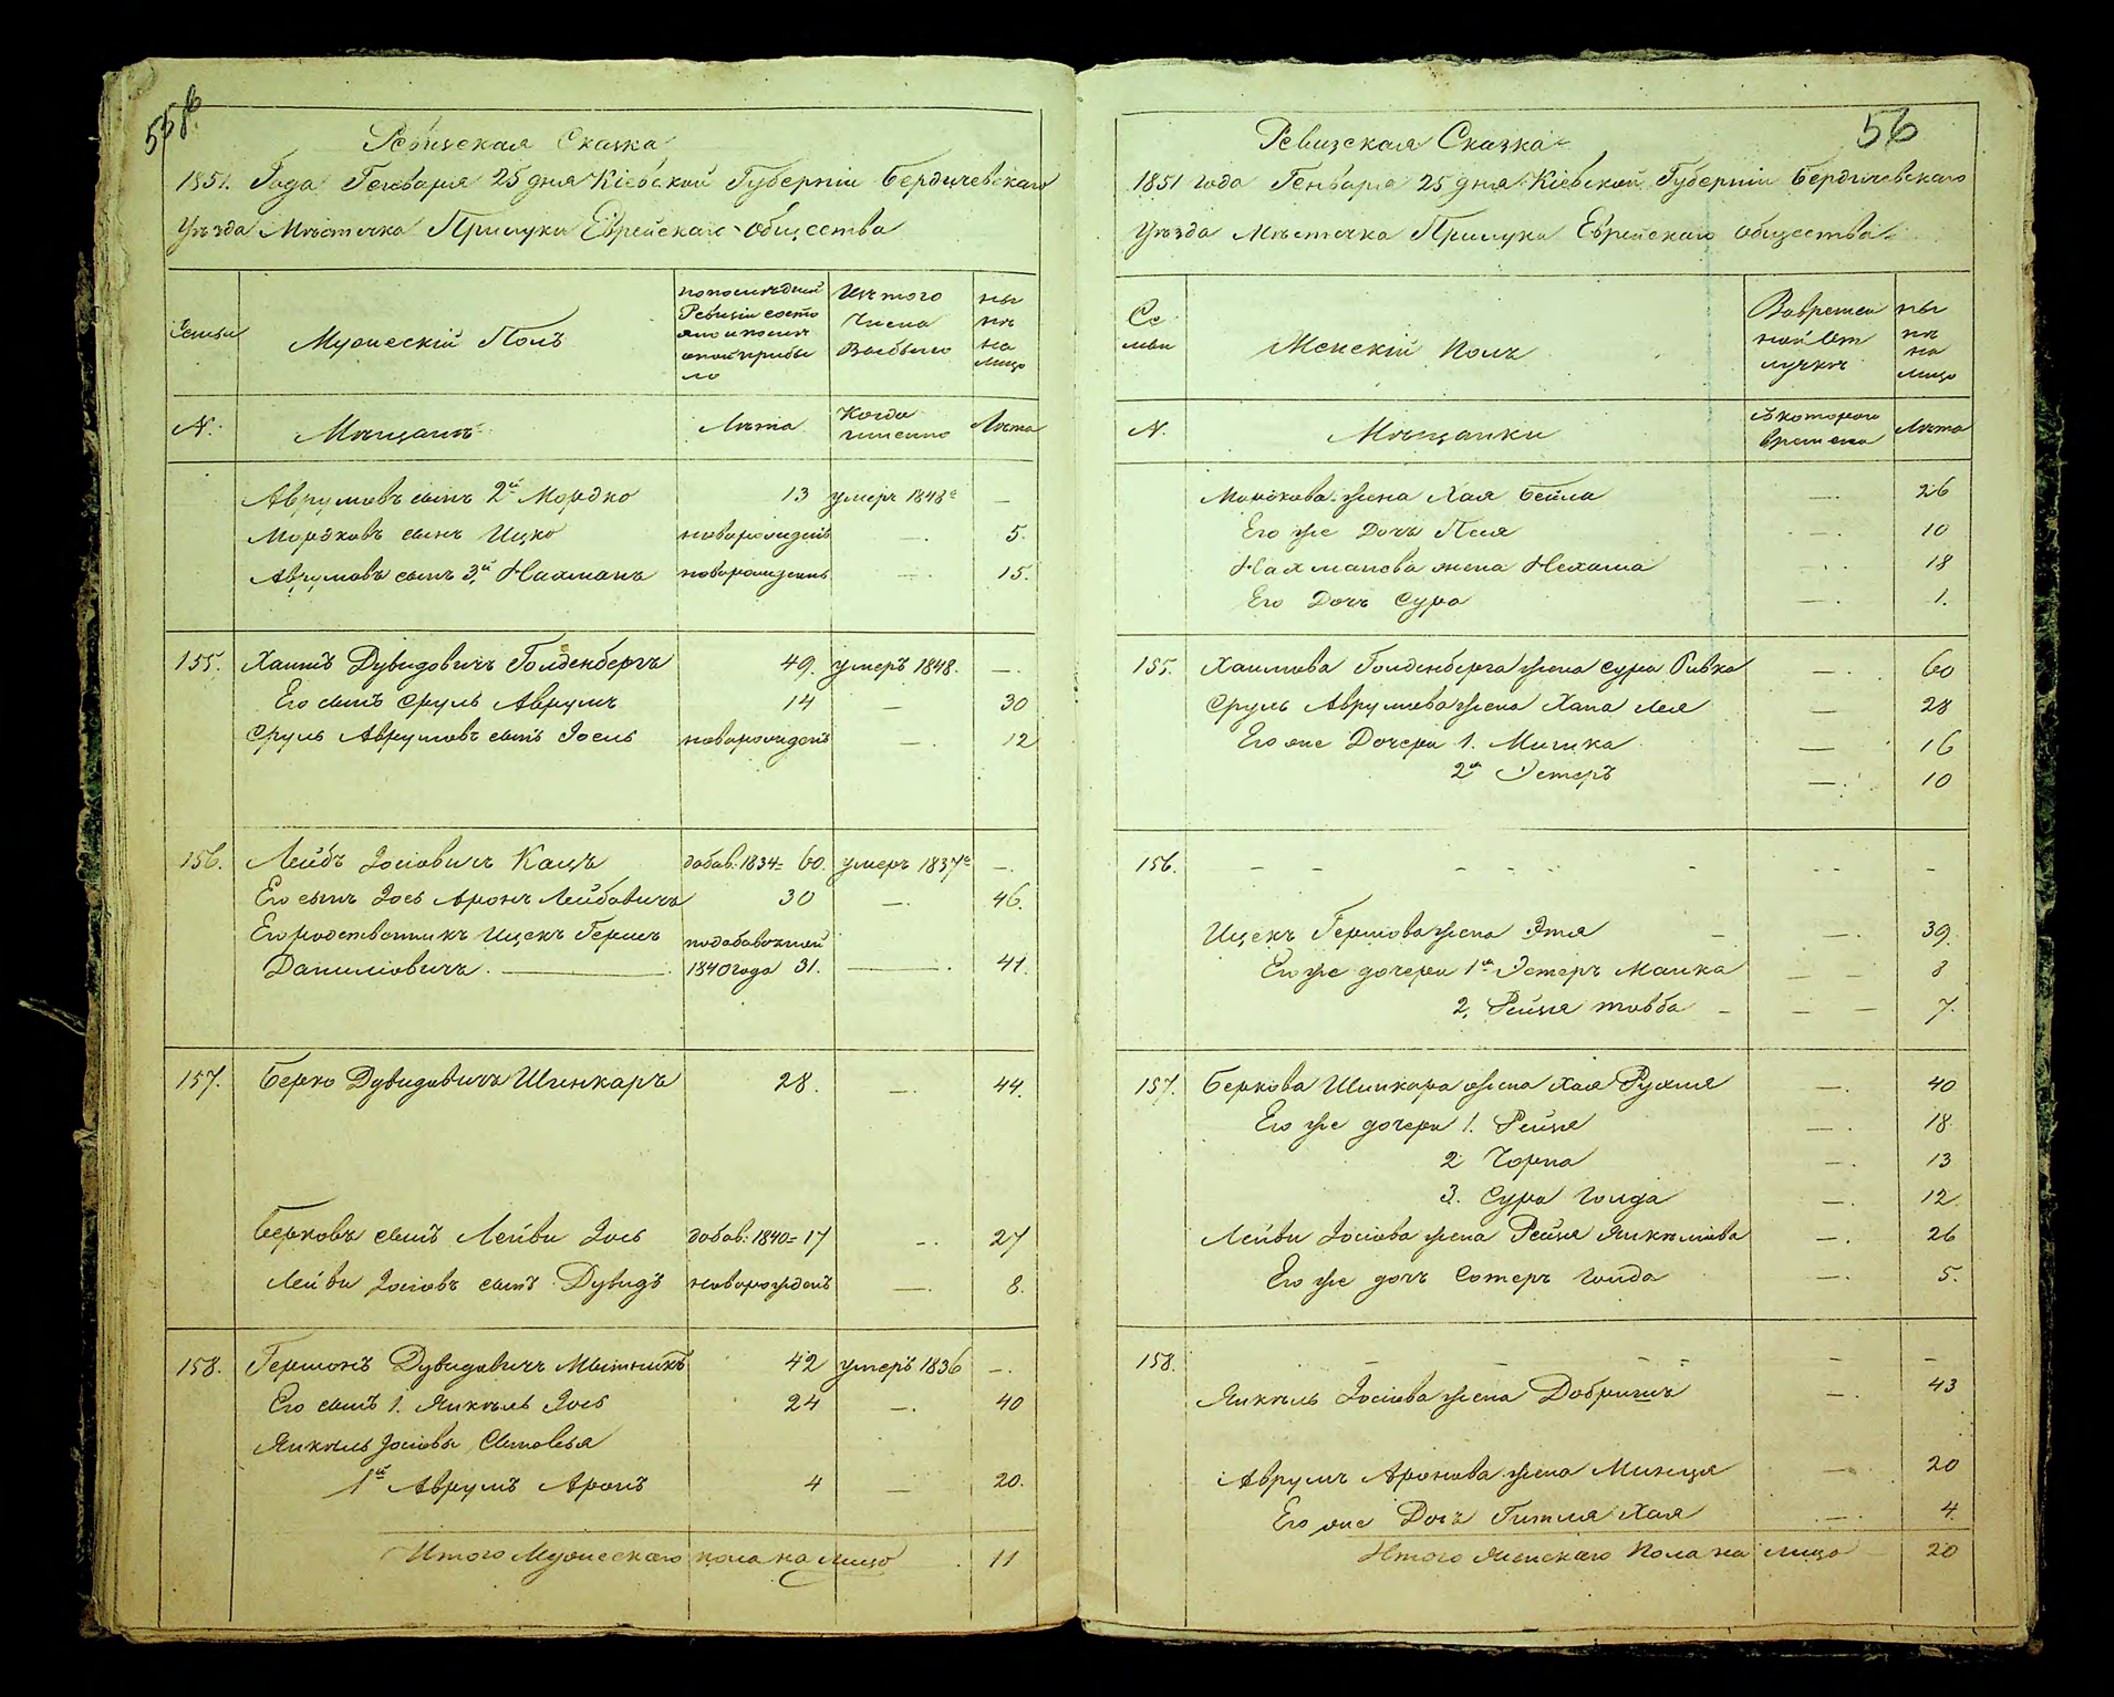 55об.
Ревизская Сказка
1851. Года Генваря 25 дня Кіевской Губерніи Бердичевскаго
Уѣзда Мѣстечка Прилуки Еврейскаго Общества
Семьи
Мужескій Полъ
по последней Ревизіи состояло и после оной прибыло
Изъ того Числа Выбыло
ны нѣ на лицо
N.
Мѣщанъ
Лѣта
Когда именно
Лѣта
Аврумовъ сынъ 2й Мордко 13 умеръ 1848г —
Мордковъ сынъ Ицко новорожденъ —. 5.
Аврумовъ сынъ 3й Нахманъ новорожденъ —. 15.
155. Хаимъ Дувидовичъ Голденбергъ 49. умеръ 1848. —.
Его сынъ Сруль Аврумъ 14 — 30
Сруль Аврумовъ сынъ Іосль новорожденъ —. 12
156. Лейбъ Іосіовичъ Кацъ добав: 1834= 60. умеръ 1837г —.
Его сынъ Іось Аронъ Лейбовичъ 30 —. 46.
Его родственникъ Ицекъ Гершъ по добавочной
Даниліовичъ. 1840 года 31. —. 41.
157. Берко Дувидовичъ Шинкаръ 28. —. 44.
Берковъ сынъ Лейви Іось добав: 1840= 17 —. 27
Лейви Іосіовъ сынъ Дувидъ новорожденъ —. 8.
158. Гершонъ Дувидовичъ Мытникъ 42 умеръ 1836 —.
Его сынъ 1. Янкѣль Іось 24 —. 40
Янкѣль Іосіовы Сыновья
1й Аврумъ Аронъ 4 — 20.
Итого Мужескаго пола на лицо . 11
56
Ревизская Сказка
1851 года Генваря 25 дня Кіевской Губерніи Бердичевскаго
Уѣзда Мѣстечка Прилука Еврейскаго общества
Се мьи
Женскій Полъ
Во временной отлучкѣ
ны нѣ на лицо
N.
Мѣщанки
Съ котораго времени
Лѣта
Мордкова жена Хая Бейла —. 26
Его же Дочь Песя —. 10
Нахманова жена Нехама 18
Его Дочь Сура —. 1.
155. Хаимова Голденберга жена Сура Ривка —. 60
Сруль Аврумова жена Хана Лея — 28
Его же Дочери 1. Милка — 16
2я Эстеръ —. 10
156. - - - - - - - - -
Ицекъ Гершова жена Этя —. 39.
Его же дочери 1я Эстеръ Малка — — 8
2. Рейзя товба — — — 7.
157. Беркова Шинкара жена Хая Рухля —. 40
Его же дочери 1. Рейзя —. 18.
2 Чорна —. 13
3. Сура Голда —. 12.
Лейви Іосіова жена Рейзя Янкѣліова —. 26
Его же дочь Естеръ Голда —. 5.
158. — — - - — —
Янкѣль Іосіова жена Добришъ —. 43
Аврумъ Аронова жена Минця — 20
Его же Дочь Гитля Хая —. 4.
Итого женскаго Пола на лицо 20